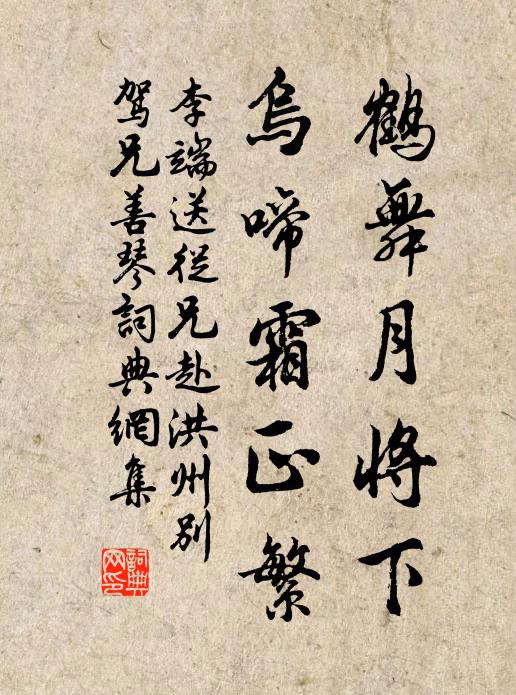 鹤舞月将下
乌啼霜正繁
李端送従兄赴洪州别
驾兄善琴詞典網集
詞典网印